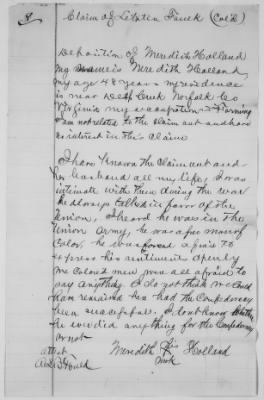 8
Claim of Litzten Fauck (Col'd)
Deposition of Meredith Holland
My name is Meredith Holland,
my age 48 years my residence
is near Deep Creek Norfolk Co
Virginia my occupation - Farming
I am not related to the claimant and have
no interest in this Claim
I have Known the Claimant and
her husband all my life, I was
intimate with them during the war
he always talked in favor of the
Union, I heard he was in the
Union Army, he was a free man of
Color, he was forced afraid to
express his sentiments openly
We Colored men were all afraid to
say anything. I do not think we could
have remained here had the Confederacy
been successful, I dont know whether
he ever did anything for the Confederacy
or not
attest
Meredith his Holland
mark